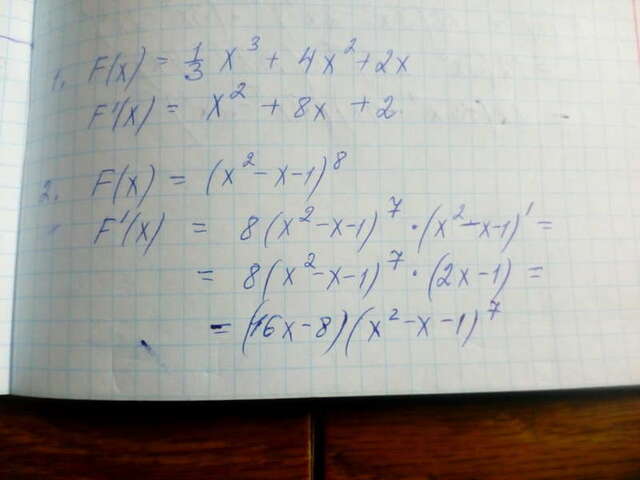 1. F(x) = 1/3 x³ + 4x² + 2x
F'(x) = x² + 8x + 2
2. F(x) = (x² - x - 1)⁸
F'(x) = 8(x² - x - 1)⁷ · (x² - x - 1)' =
= 8(x² - x - 1)⁷ · (2x - 1) =
= (16x - 8)(x² - x - 1)⁷